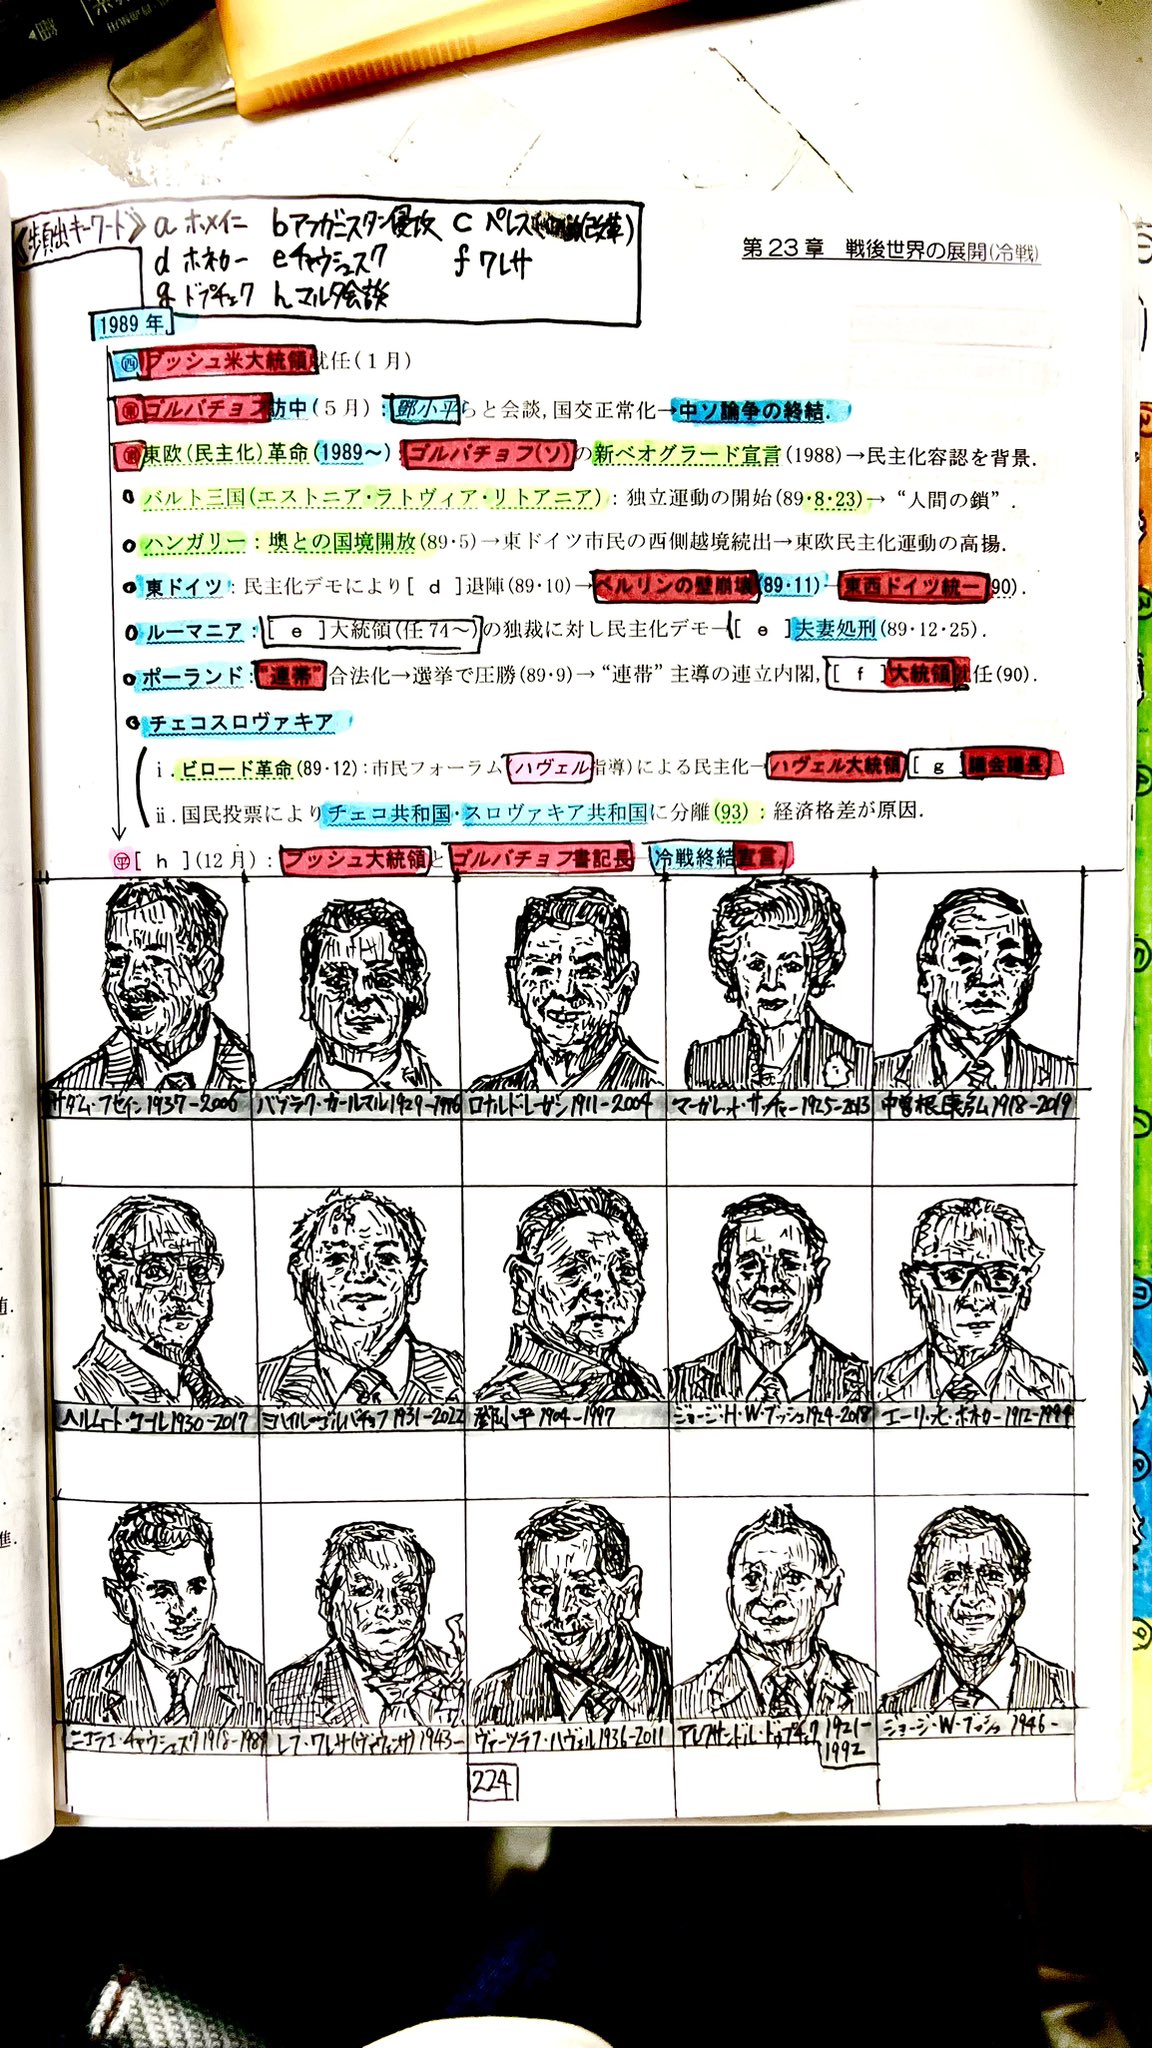 《頻出キーワード》 a ホメイニ b アフガニスタン侵攻 c ペレス (改革)
d ホネカー e チャウシェスク f ワレサ
g ドプチェク h マルタ会談
第23章 戦後世界の展開(冷戦)
1989年
㊄ ブッシュ米大統領就任(1月)
ゴルバチョフ訪中(5月):鄧小平らと会談,国交正常化→中ソ論争の終結.
東欧(民主化)革命(1989～):ゴルバチョフ(ソ)の新ベオグラード宣言(1988)→民主化容認を背景.
バルト三国(エストニア・ラトヴィア・リトアニア):独立運動の開始(89・8・23)→“人間の鎖”.
ハンガリー:墺との国境開放(89・5)→東ドイツ市民の西側越境続出→東欧民主化運動の高揚.
東ドイツ:民主化デモにより[ d ]退陣(89・10)→ベルリンの壁崩壊(89・11)→東西ドイツ統一(90).
ルーマニア:[ e ]大統領(任74～)の独裁に対し民主化デモ→[ e ]夫妻処刑(89・12・25).
ポーランド:“連帯”合法化→選挙で圧勝(89・9)→“連帯”主導の連立内閣,[ f ]大統領就任(90).
チェコスロヴァキア
ⅰ.ビロード革命(89・12):市民フォーラム(ハヴェル指導)による民主化→ハヴェル大統領[ g ]議会議長.
ⅱ.国民投票によりチェコ共和国・スロヴァキア共和国に分離(93):経済格差が原因.
㊉[ h ](12月):ブッシュ大統領とゴルバチョフ書記長→冷戦終結宣言.
サダム・フセイン1937-2006 バブラク・カールマル1929-1996 ロナルド・レーガン1911-2004 マーガレット・サッチャー1925-2013 中曽根康弘1918-2019
ヘルムート・コール1930-2017 ミハイル・ゴルバチョフ1931-2022 鄧小平1904-1997 ジョージ・H・W・ブッシュ1924-2018 エーリッヒ・ホネカー1912-1994
ニコラエ・チャウシェスク1918-1989 レフ・ワレサ(ヴァウェンサ)1943- ヴァーツラフ・ハヴェル1936-2011 アレクサンドル・ドゥプチェク1921-1992 ジョージ・W・ブッシュ1946-
224